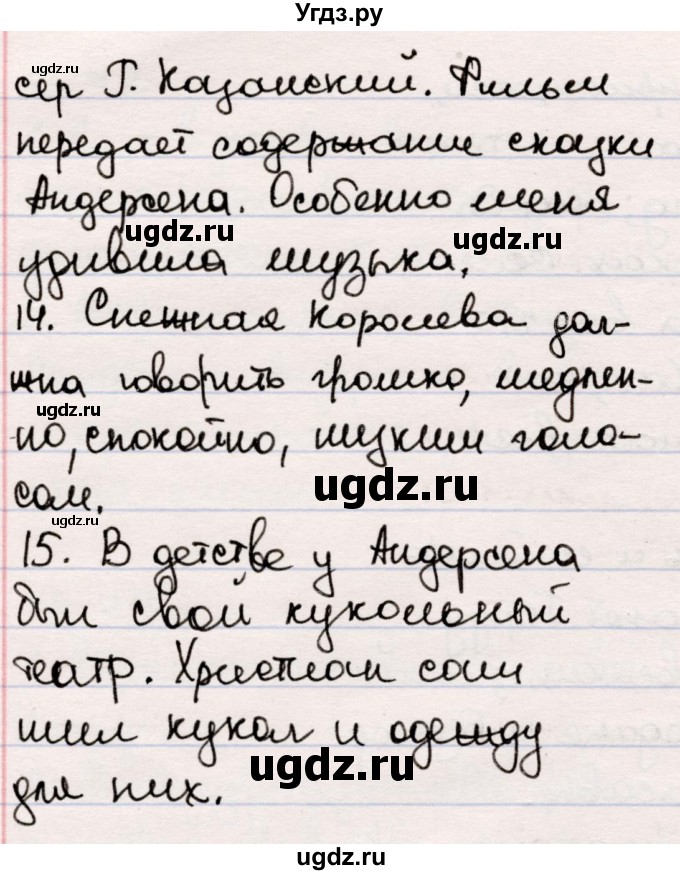 Угдз.ру
ugdz.ru
сер Г. Казанский. Фильм
передает содержание сказки
ugdz.ru
Андерсена. Особенно меня
ugdz.ru ugdz.ru
удивила музыка.
14. Снежная Королева дол-
жна говорить громко, медлен-
ugdz.ru
но, спокойно, низким голо-
ugdz.ru
сом.
ugdz.ru
15. В детстве у Андерсена
был свой кукольный
театр. Христиан сам
шил кукол и одежду
ugdz.ru ugdz.ru
для них.
ugdz.ru